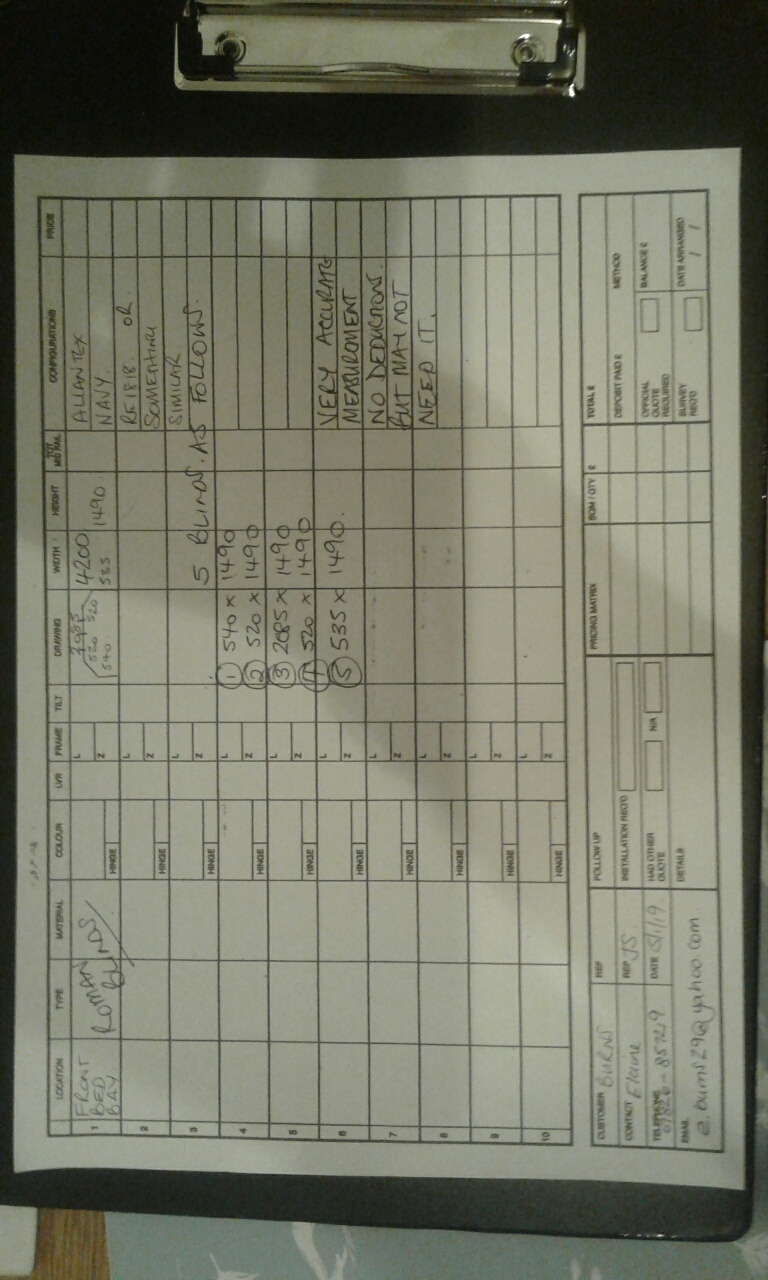 LOCATION TYPE MATERIAL COLOUR LVR FRAME TILT DRAWING WIDTH HEIGHT MID RAIL CONFIGURATIONS PRICE
1 FRONT BED BAY ROMAN BLINDS HINGE L Z 540 520 520 535 4200 1490. ALLANTEX
NAVY.
2 HINGE L Z RE1818. OR
SOMETHING
3 HINGE L Z SIMILAR
5 BLINDS. AS FOLLOWS.
4 HINGE L Z 1 540 x 1490
2 520 x 1490
5 HINGE L Z 3 2085 x 1490
4 520 x 1490
6 HINGE L Z 5 535 x 1490. VERY ACCURATE
MEASUREMENT
7 HINGE L Z NO DEDUCTIONS.
BUT MAY NOT
8 HINGE L Z NEED IT.
9 HINGE L Z
10 HINGE L Z
CUSTOMER BURNS REF FOLLOW UP PRICING MATRIX SQM / QTY £ TOTAL £
CONTACT Elaine REP JS INSTALLATION REQ'D DEPOSIT PAID £ METHOD
TELEPHONE DATE 15/1/19. HAD OTHER QUOTE N/A OFFICIAL QUOTE REQUIRED BALANCE £
EMAIL e.burns29@yahoo.com DETAILS SURVEY REQ'D DATE ARRANGED / /